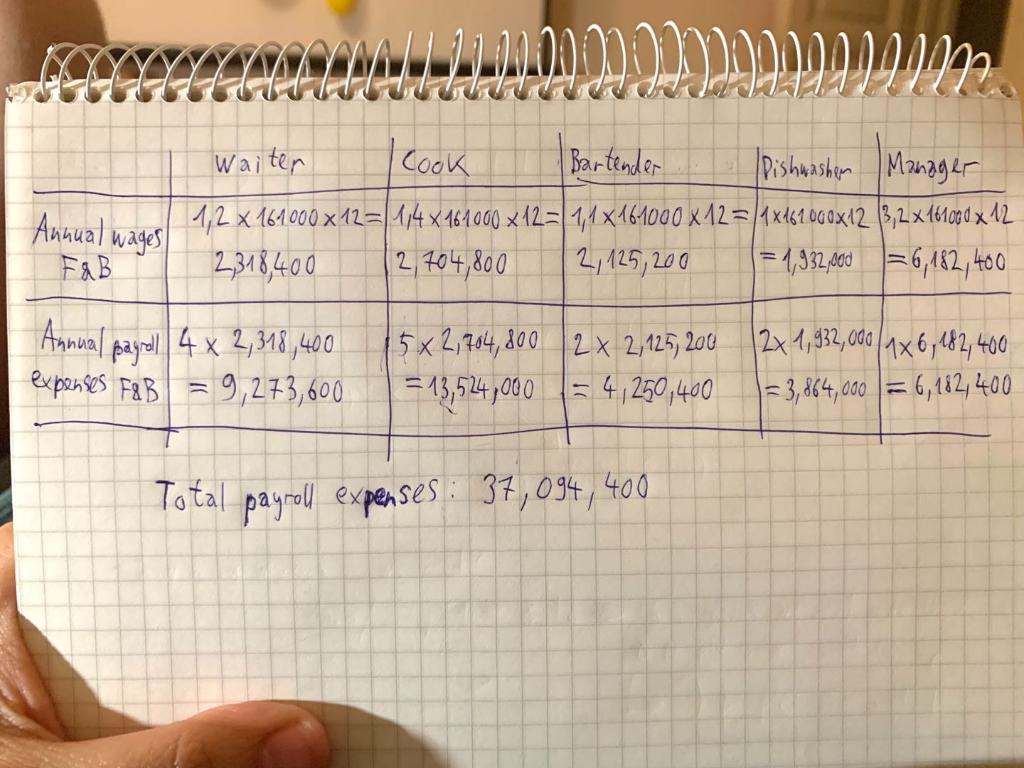 Waiter Cook Bartender Dishwasher Manager
Annual wages F&B 1,2 x 161000 x 12 = 1,4 x 161000 x 12 = 1,1 x 161000 x 12 = 1x161000x12 3,2 x 161000 x 12
2,318,400 2,704,800 2,125,200 = 1,932,000 = 6,182,400
Annual payroll 4 x 2,318,400 5 x 2,704,800 2 x 2,125,200 2 x 1,932,000 1 x 6,182,400
expenses F&B = 9,273,600 = 13,524,000 = 4,250,400 = 3,864,000 = 6,182,400
Total payroll expenses: 37,094,400